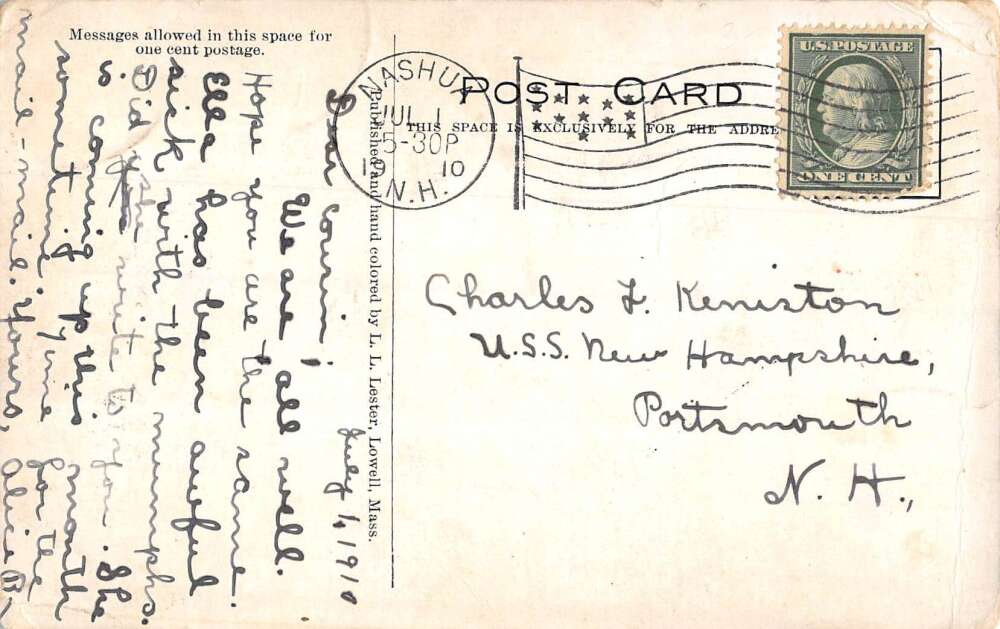 Messages allowed in this space for
one cent postage.
POST CARD
THIS SPACE IS EXCLUSIVELY FOR THE ADDRE
NASHUA
JUL 1
5-30P
10
N.H.
U.S. POSTAGE
ONE CENT
Published and hand colored by L. L. Lester, Lowell, Mass.
July 1, 1910
Dear cousin,
We are all well.
Hope you are the same.
Ella has been awful
sick with the mumphs.
Did she write to you. She
s. coming up this month
sometime. for the
mail-maid. Yours, Alice B.
Charles F. Keniston
U.S.S. New Hampshire,
Portsmouth
N. H.,